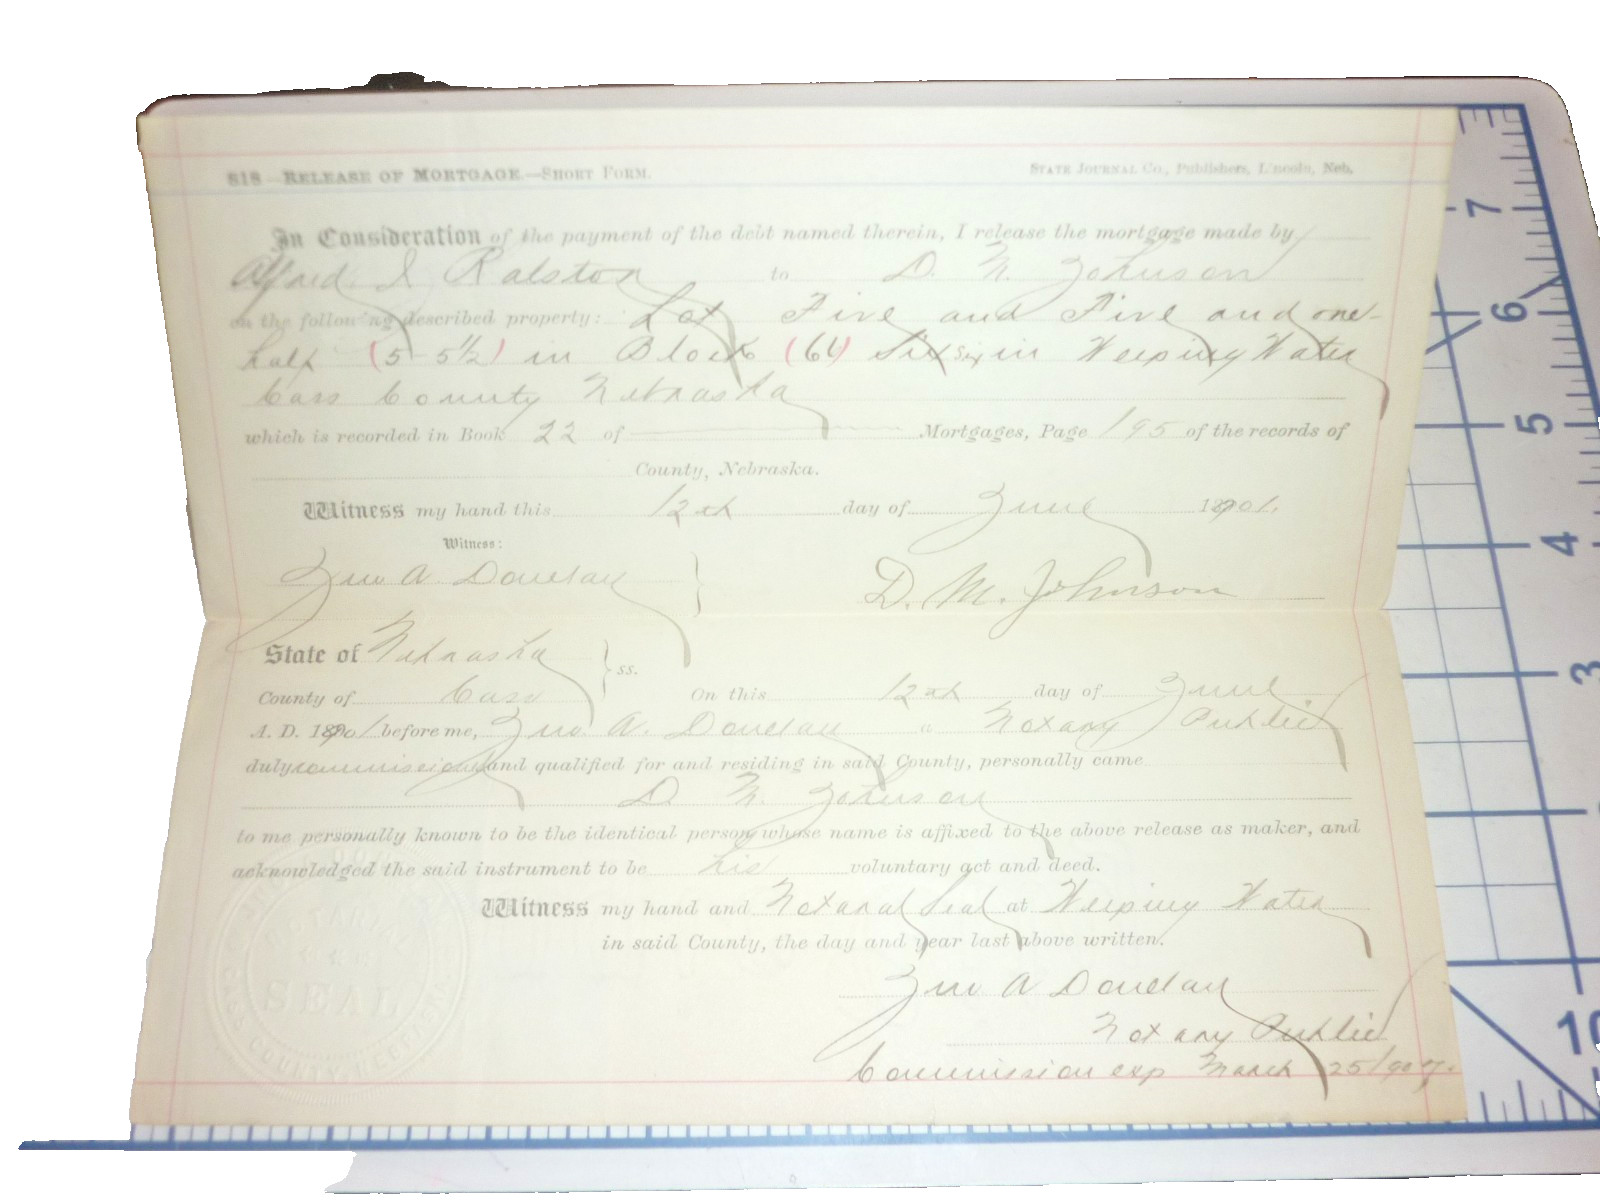 818—RELEASE OF MORTGAGE.—SHORT FORM.
STATE JOURNAL CO., Publishers, Lincoln, Neb.
In Consideration of the payment of the debt named therein, I release the mortgage made by
Ralston to D. M. Johnson
on the following described property: Lot Five and Five and one-
half (5-5½) in Block (64) Six in Weeping Water
Cass County Nebraska
which is recorded in Book 22 of Mortgages, Page 195 of the records of
County, Nebraska.
Witness my hand this 12th day of June 1901.
Witness:
Jno A
D. M. Johnson
State of Nebraska } ss.
County of Cass On this 12th day of June
A. D. 1901 before me, Jno. A. a Notary Public
duly commissioned and qualified for and residing in said County, personally came
D. M. Johnson
to me personally known to be the identical person whose name is affixed to the above release as maker, and
acknowledged the said instrument to be his voluntary act and deed.
Witness my hand and Notarial Seal at Weeping Water
in said County, the day and year last above written.
Jno A
Notary Public
Commission exp March 25 1907.
NOTARIAL
SEAL
CASS COUNTY, NEBRASKA
7
6
5
4
3
10